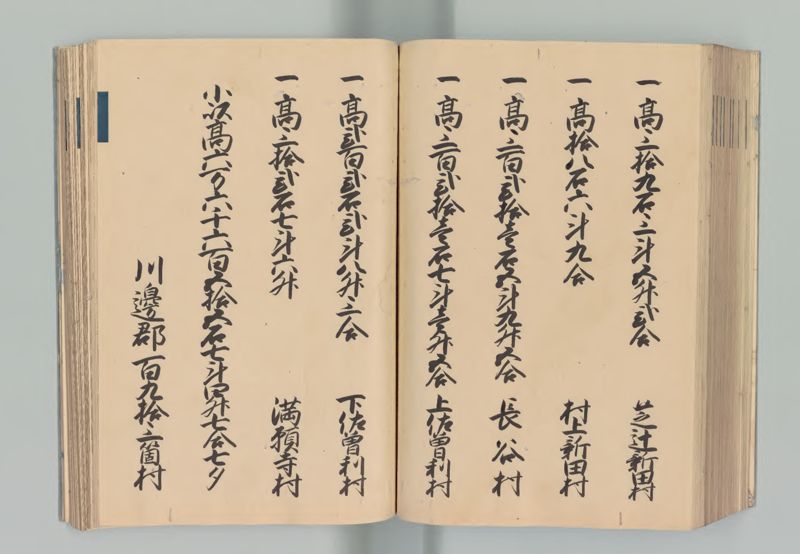 一 高三拾九石三斗五升弐合 芝辻新田村
一 高拾八石六斗九合 村上新田村
一 高三百弐拾壱石五斗九升五合 長谷村
一 高三百弐拾壱石七斗壱升五合 上佐曽利村
一 高弐百弐石弐斗八升三合 下佐曽利村
一 高三拾弐石七斗六升 満願寺村
小以高六万六千六百五拾五石七斗四升七合七夕
川邊郡 百九拾三箇村